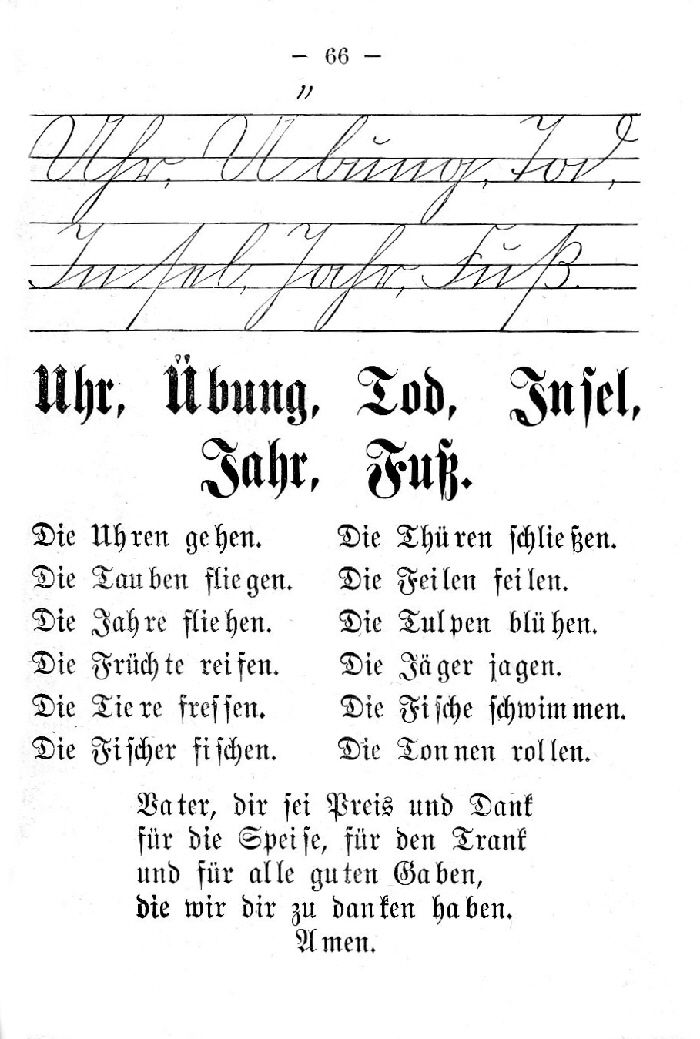 — 66 —
Uhr, Übung, Tod,
Insel, Jahr, Fuß.
Uhr, Übung, Tod, Insel,
Jahr, Fuß.
Die Uhren gehen.
Die Tauben fliegen.
Die Jahre fliehen.
Die Früchte reifen.
Die Tiere fressen.
Die Fischer fischen.
Die Thüren schließen.
Die Feilen feilen.
Die Tulpen blühen.
Die Jäger jagen.
Die Fische schwimmen.
Die Tonnen rollen.
Vater, dir sei Preis und Dank
für die Speise, für den Trank
und für alle guten Gaben,
die wir dir zu danken haben.
Amen.